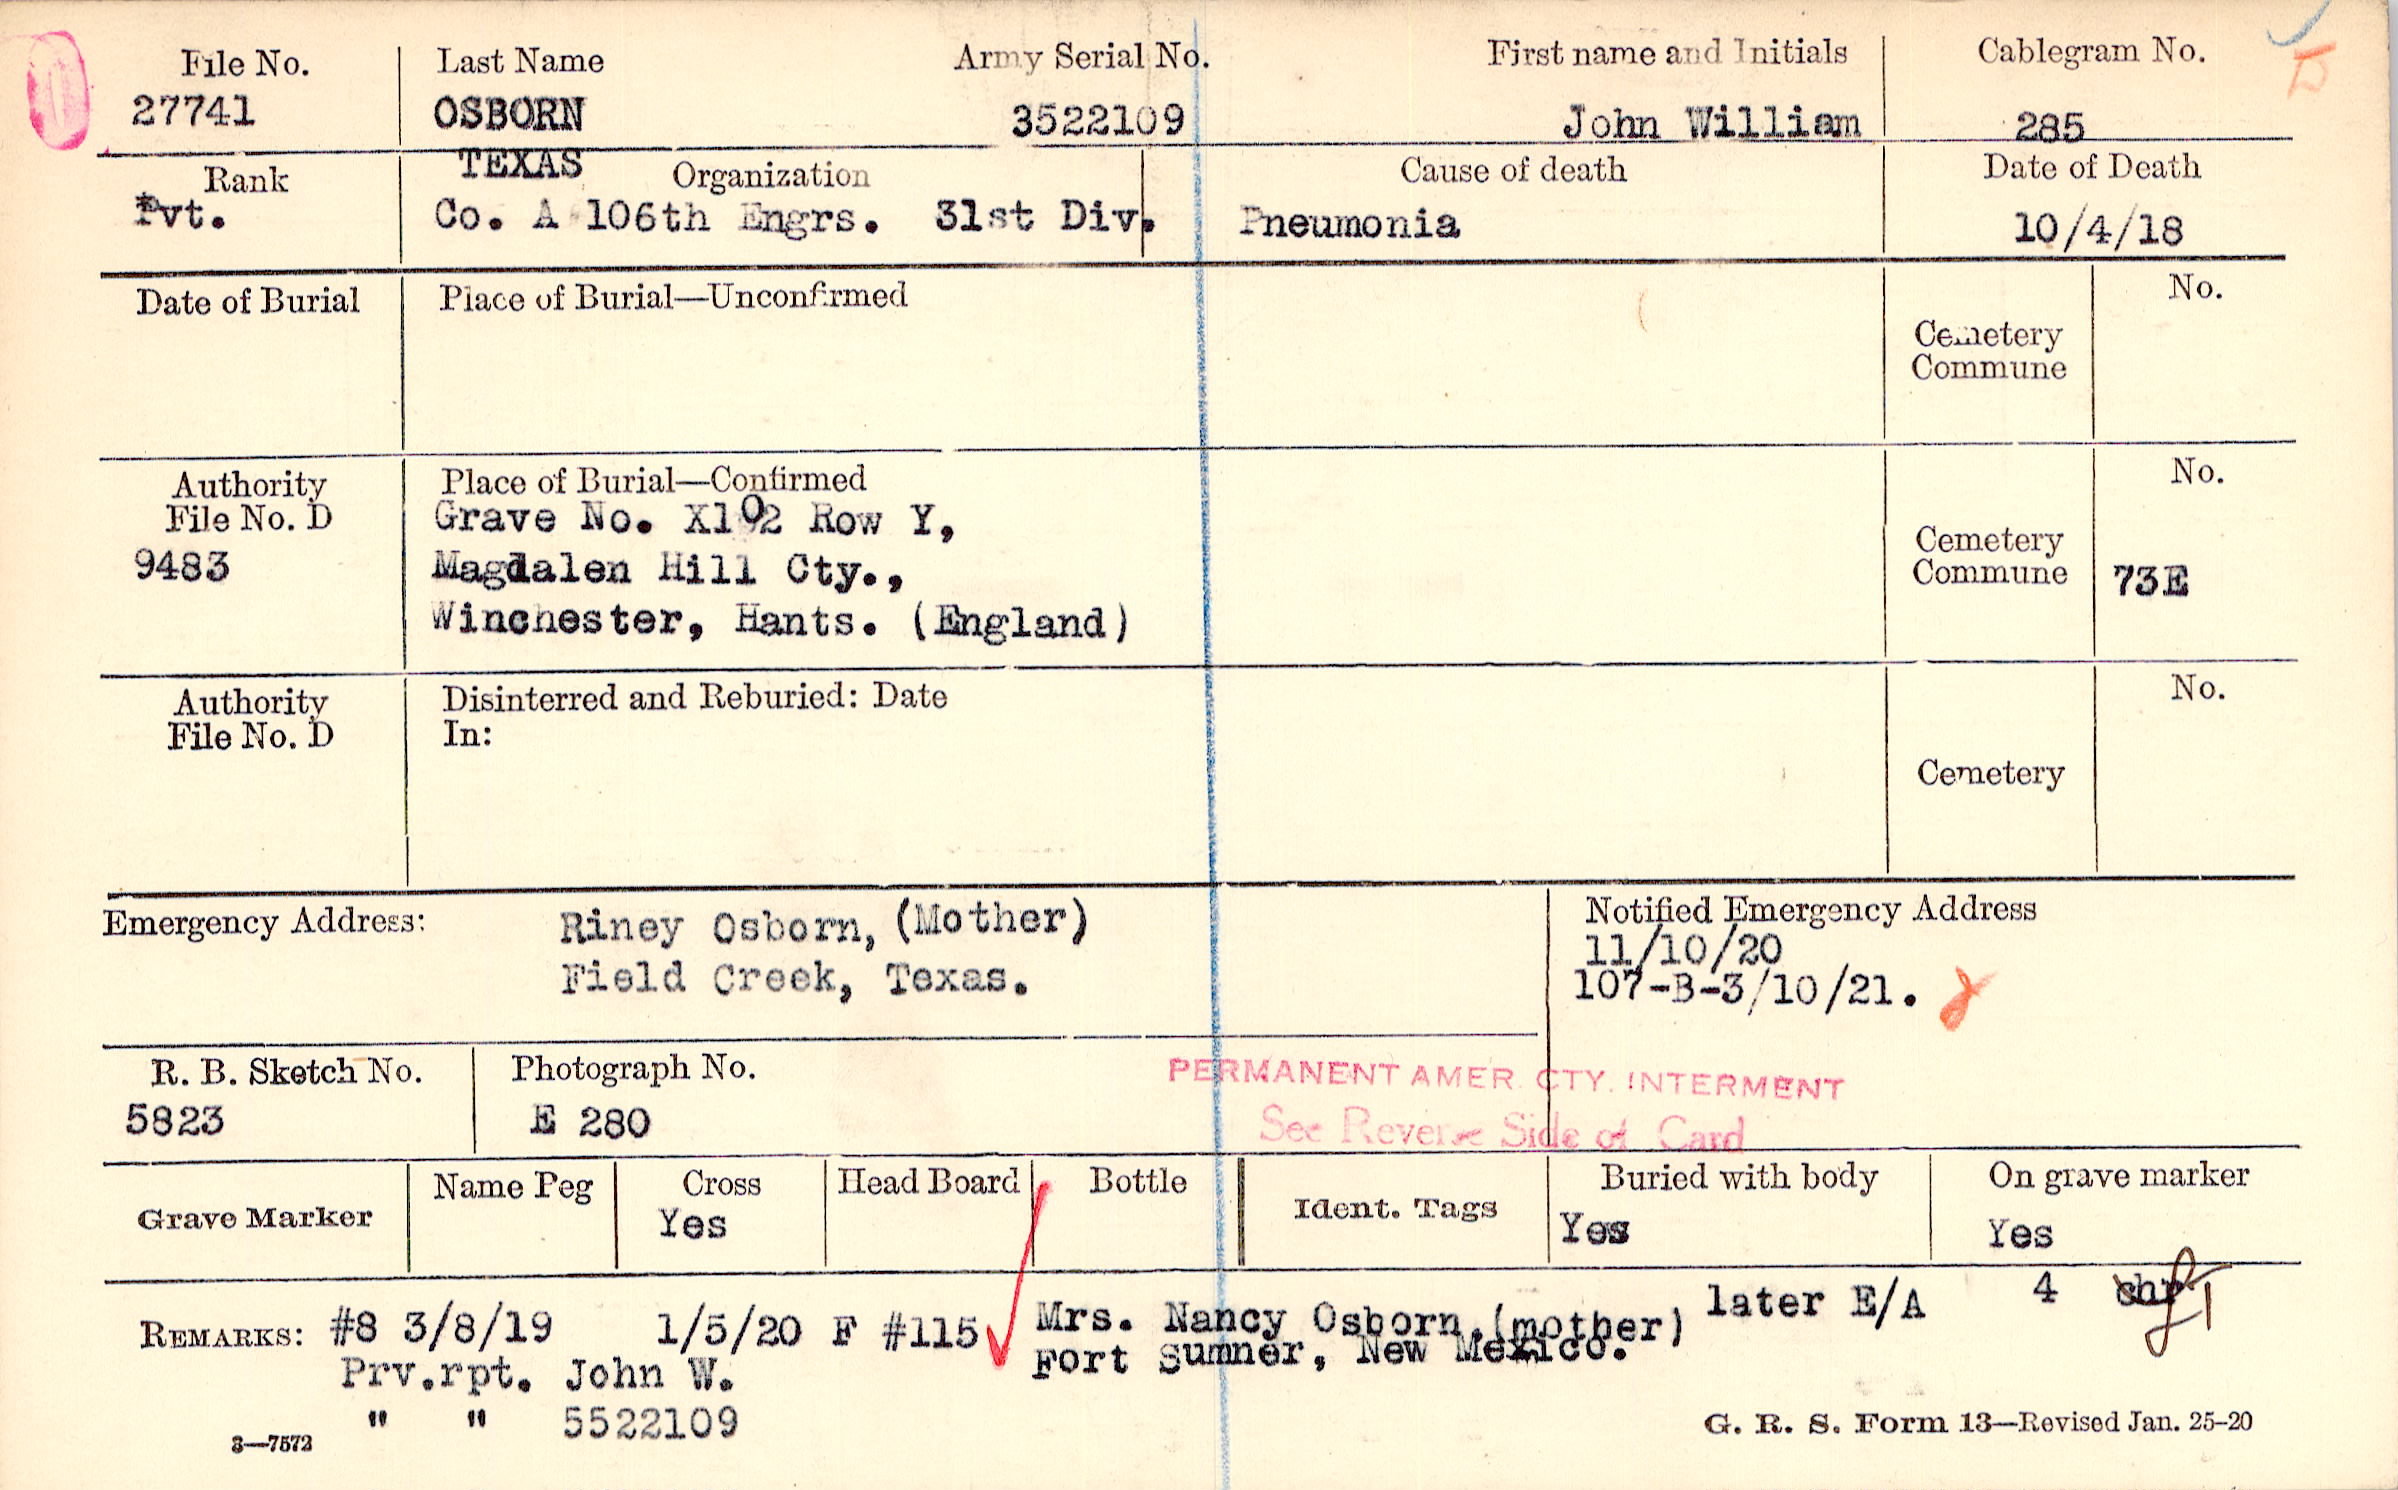 File No. Last Name Army Serial No. First name and Initials Cablegram No.
27741 OSBORN 3522109 John William 285
TEXAS
Rank Organization Cause of death Date of Death
Pvt. Co. A 106th Engrs. 31st Div. Pneumonia 10/4/18
Date of Burial Place of Burial—Unconfirmed No.
Cemetery
Commune
Authority Place of Burial—Confirmed No.
File No. D Grave No. X102 Row Y,
9483 Magdalen Hill Cty., Cemetery
Commune 73E
Winchester, Hants. (England)
Authority Disinterred and Reburied: Date No.
File No. D In:
Cemetery
Emergency Address: Riney Osborn, (Mother) Notified Emergency Address
Field Creek, Texas. 11/10/20
107-B-3/10/21.
R. B. Sketch No. Photograph No. PERMANENT AMER. CTY. INTERMENT
5823 E 280 See Reverse Side of Card
Grave Marker Name Peg Cross Head Board Bottle Ident. Tags Buried with body On grave marker
Yes Yes Yes
REMARKS: #8 3/8/19 1/5/20 F #115 Mrs. Nancy Osborn, (mother) later E/A 4 chr
Fort Sumner, New Mexico.
Prv.rpt. John W.
" " 5522109
3—7572 G. R. S. Form 13—Revised Jan. 25-20